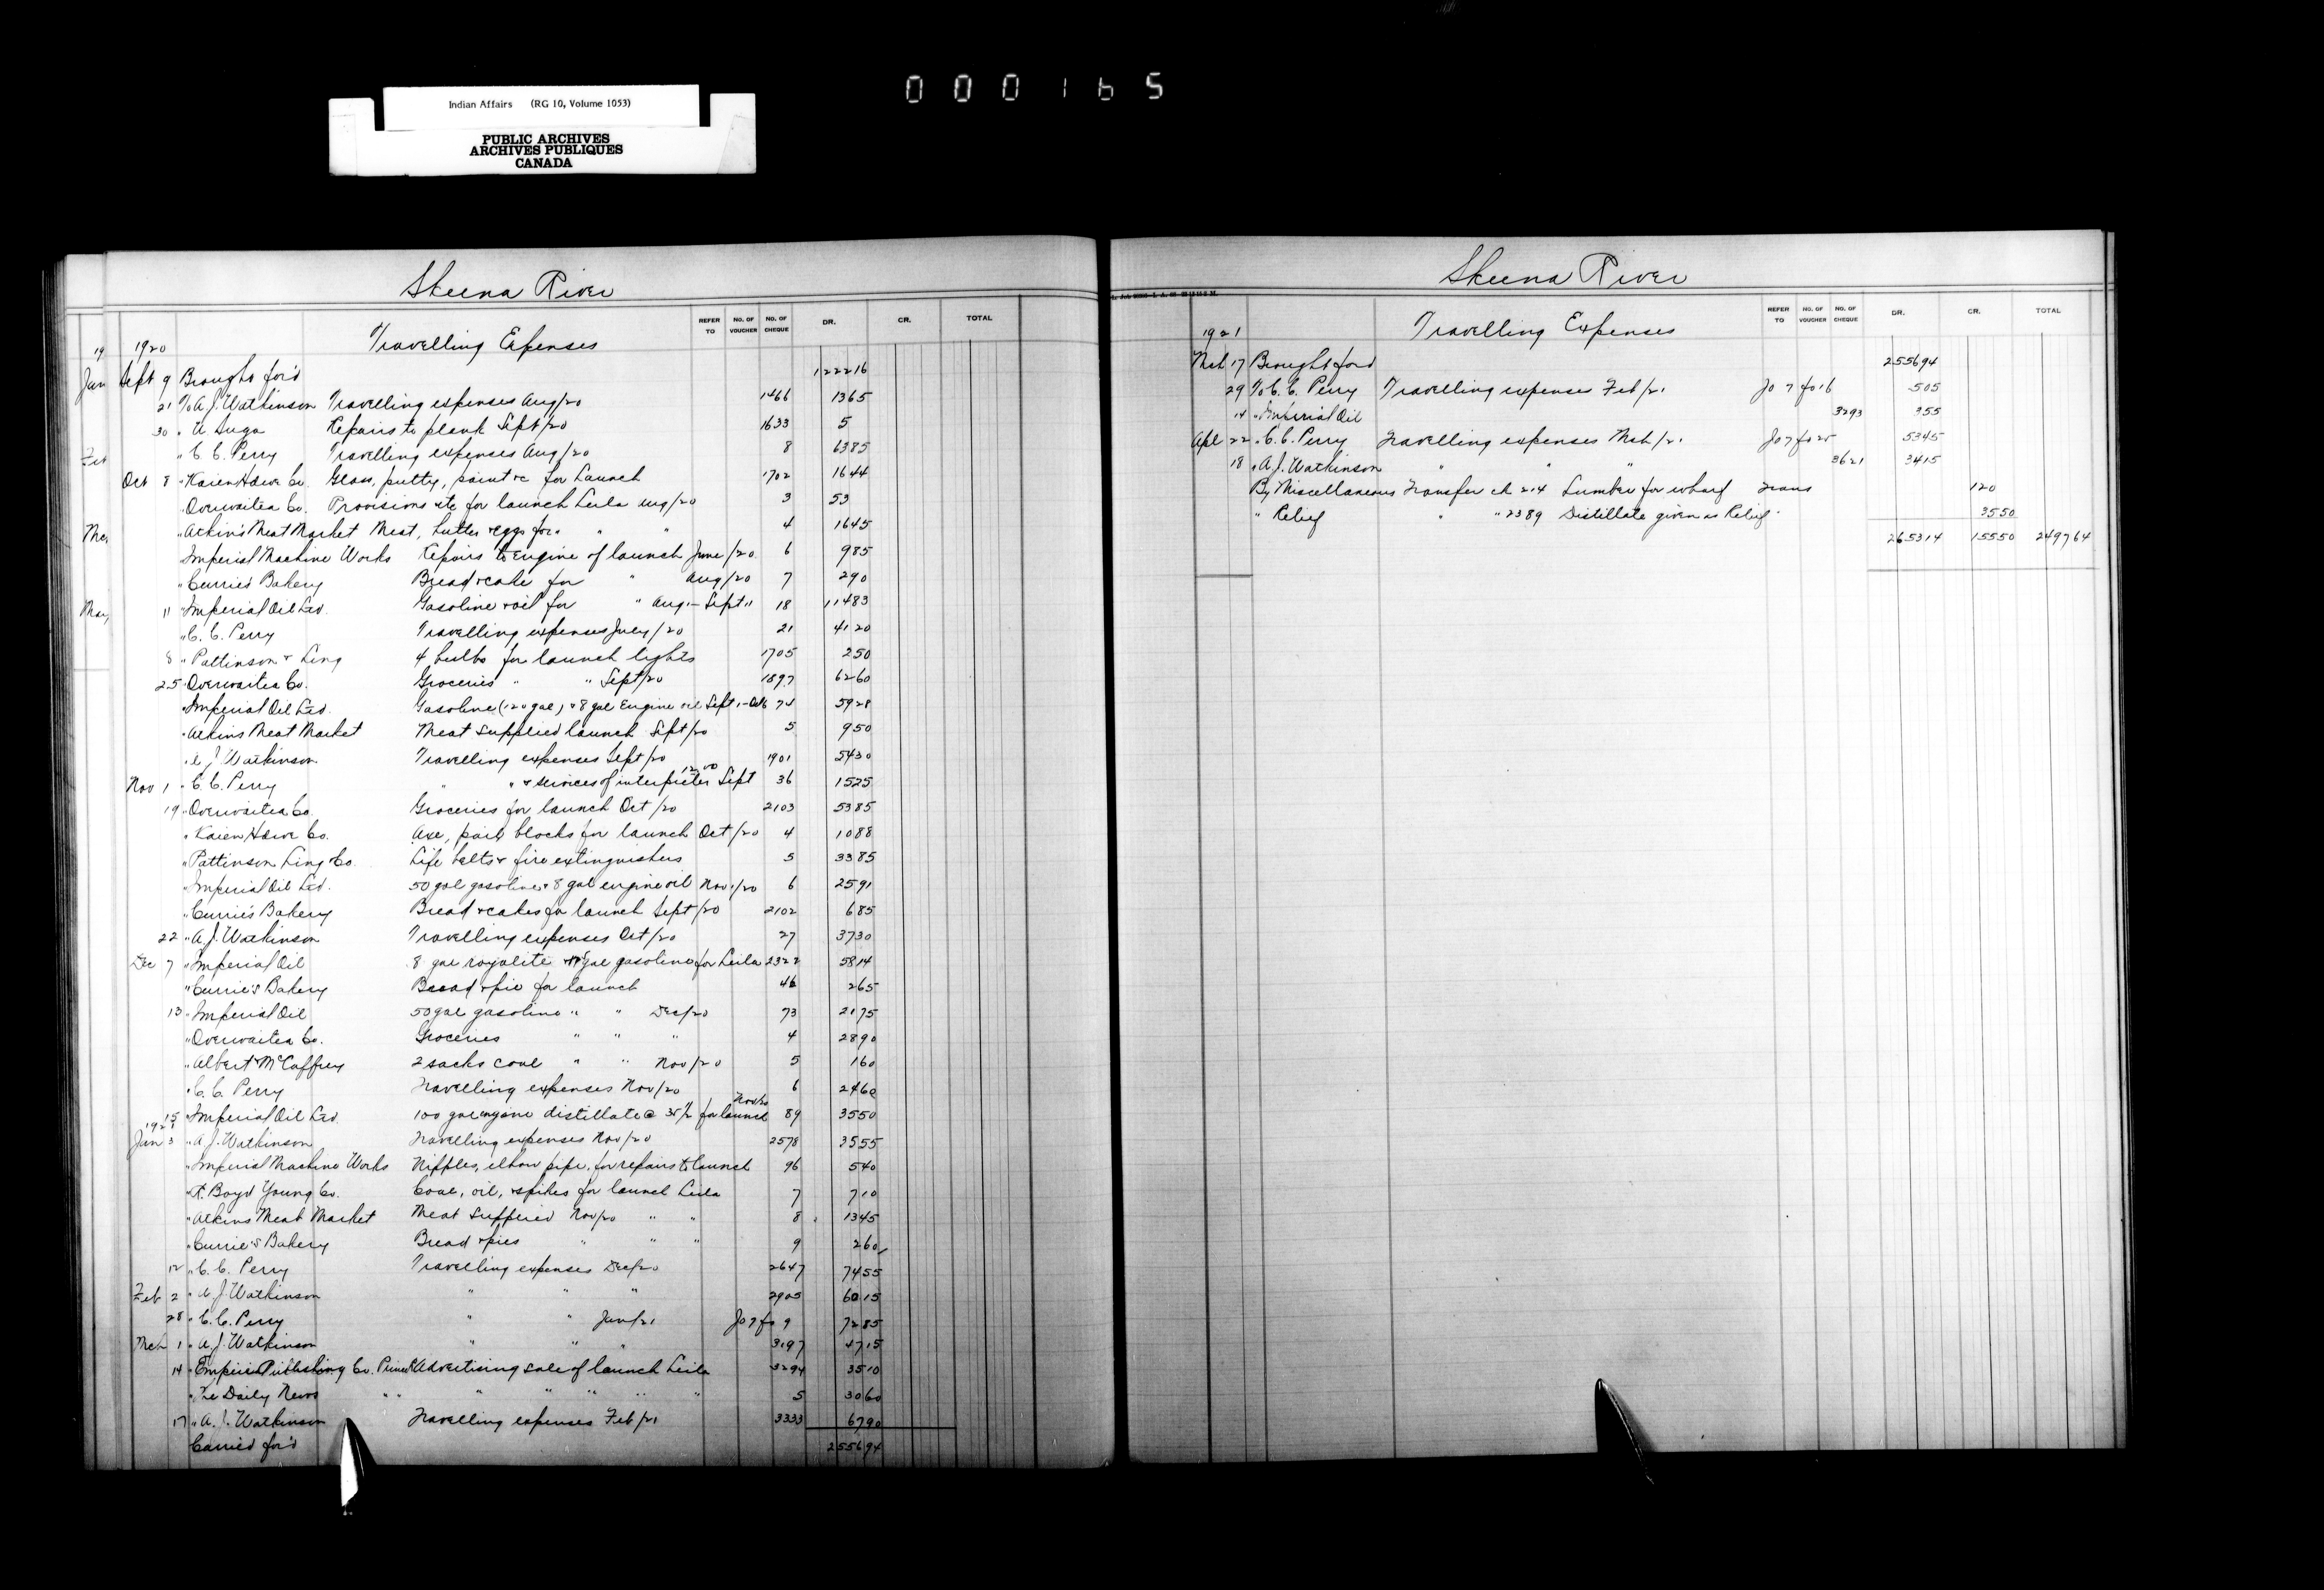 000165
Indian Affairs (RG 10, Volume 1053)
PUBLIC ARCHIVES
ARCHIVES PUBLIQUES
CANADA
Skeena River
REFER TO NO. OF VOUCHER NO. OF CHEQUE DR. CR. TOTAL
1920 Travelling Expenses
Sept 9 Brought for'd 122216
21 To A. J. Watkinson Travelling expenses Aug/20 1466 1365
30 " Repairs to plank Sept/20 1633 5
" C. C. Perry Travelling expenses Aug/20 8 6385
Oct 8 " Kaien Hdwe Co. Glass, putty, paint &c for Launch 1702 1644
" Overwaitea Co. Provisions etc for launch Leila Aug/20 3 53
" Atkin's Meat Market Meat, butter & eggs for " " 4 1645
Imperial Machine Works Repairs to Engine of launch June/20 6 985
" Currie's Bakery Bread & cake for " Aug/20 7 290
11 " Imperial Oil Ltd. Gasoline & oil for " Aug. - Sept " 18 11483
" C. C. Perry Travelling expenses July/20 21 4120
8 " Pattinson & Ling 4 bulbs for launch lights 1705 250
25 " Overwaitea Co. Groceries " " Sept/20 1897 6260
" Imperial Oil Ltd. Gasoline (120 gal) & 8 gal Engine oil Sept. - Oct 74 5928
" Atkins Meat Market Meat supplied launch Sept/20 5 950
" A. J. Watkinson Travelling expenses Sept/20 1901 5430
Nov 1 " C. C. Perry " " & services of interpreter 12.00 Sept 36 1525
19 " Overwaitea Co. Groceries for launch Oct/20 2103 5385
" Kaien Hdwe Co. Axe, pail blocks for launch Oct/20 4 1088
" Pattinson Ling & Co. Life belts & fire extinguishers 5 3385
" Imperial Oil Ltd. 50 gal gasoline & 8 gal engine oil Nov./20 6 2591
" Currie's Bakery Bread & cakes for launch Sept/20 2102 685
22 " A. J. Watkinson Travelling expenses Oct/20 27 3730
Dec 7 " Imperial Oil 8 gal royalite gal gasoline for Leila 2322 5814
" Currie's Bakery Bread & pie for launch 46 265
13 " Imperial Oil 50 gal gasoline " " Dec/20 73 2175
" Overwaitea Co. Groceries " " " 4 2890
" Albert & McCaffrey 2 sacks coal " " Nov/20 5 160
" C. C. Perry Travelling expenses Nov/20 6 2460
15 " Imperial Oil Ltd. 100 gal distillate @ 35½ for launch Nov/20 89 3550
1921
Jan 3 " A. J. Watkinson Travelling expenses Nov/20 2578 3555
" Imperial Machine Works Nipples, elbow pipe. for repairs to launch 96 540
" R. Boyd Young Co. Coal, oil, & spikes for launch Leila 7 710
" Atkins Meat Market Meat supplied Nov/20 " " 8 1345
" Currie's Bakery Bread & pies " " " 9 260
12 " C. C. Perry Travelling expenses Dec/20 2647 7455
Feb 2 " A. J. Watkinson " " " 2905 6015
28 " C. C. Perry " " Jan/21 Jo 7 fo 9 7285
Mch 1 " A. J. Watkinson " " " 3197 4715
14 " Empire Publishing Co. Advertising sale of launch Leila 3294 3510
" The Daily News " " " " " " " 5 3060
17 " A. J. Watkinson Travelling expenses Feb/21 3333 6790
Carried for'd 255694
Skeena River
REFER TO NO. OF VOUCHER NO. OF CHEQUE DR. CR. TOTAL
1921 Travelling Expenses
Mch 17 Brought ford 255694
29 To C. C. Perry Travelling expenses Feb/21 Jo 7 fo 16 505
14 " Imperial Oil 3293 355
Apl 22 " C. C. Perry Travelling expenses Mch/21 Jo 7 fo 25 5345
18 " A. J. Watkinson " " " 3621 3415
By Miscellaneous Transfer ch 214 Lumber for wharf Trans 120
" Relief " " 2389 Distillate given as Relief " 3550
265314 15550 249764